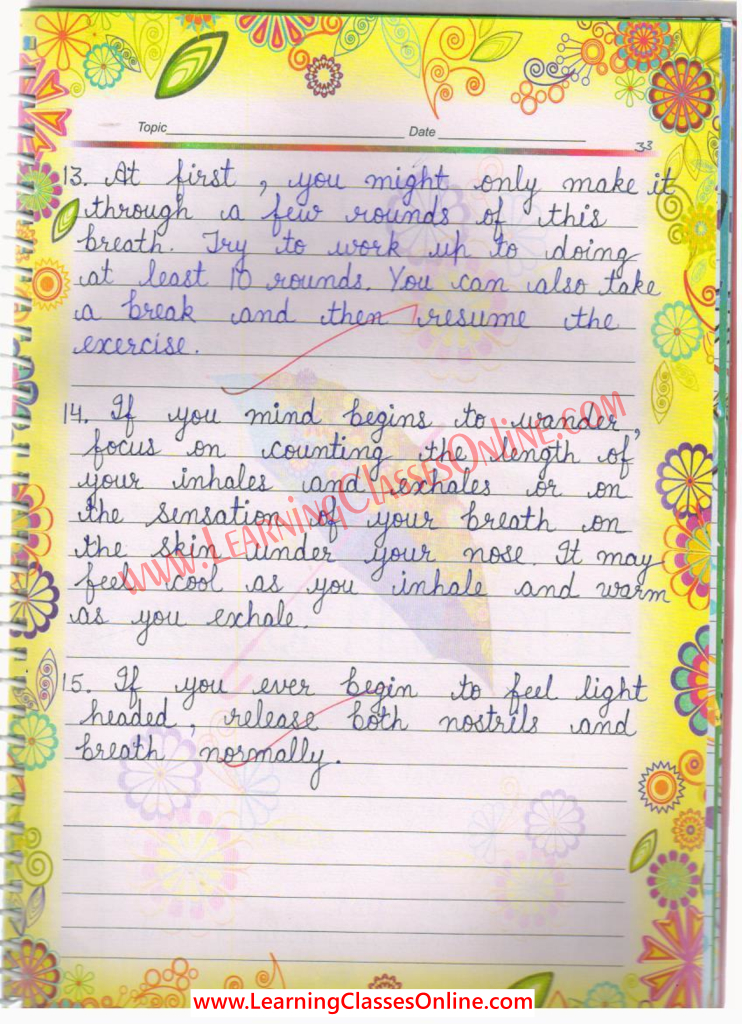 Topic Date
33
13. At first, you might only make it
through a few rounds of this
breath. Try to work up to doing
at least 10 rounds. You can also take
a break and then resume the
exercise.
14. If you mind begins to wander,
focus on counting the length of
your inhales and exhales or on
the sensation of your breath on
the skin under your nose. It may
feel cool as you inhale and warm
as you exhale.
15. If you ever begin to feel light
headed, release both nostrils and
breath normally.
www.LearningClassesOnline.com
www.LearningClassesOnline.com